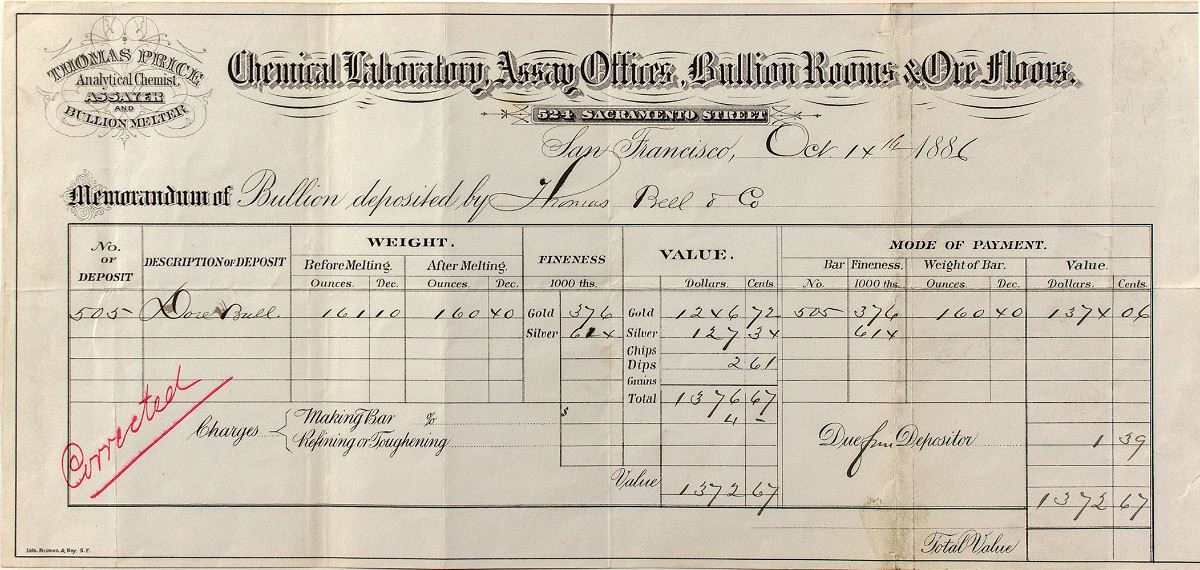 THOMAS PRICE
Analytical Chemist.
ASSAYER
AND
BULLION MELTER
Chemical Laboratory, Assay Offices, Bullion Rooms & Ore Floors.
524 SACRAMENTO STREET
San Francisco, Oct. 14th 1886
Memorandum of Bullion deposited by Thomas Bell & Co
No. OF DEPOSIT DESCRIPTION OF DEPOSIT WEIGHT. FINENESS VALUE. MODE OF PAYMENT.
Before Melting. After Melting. Bar Fineness. Weight of Bar. Value.
Ounces. Dec. Ounces. Dec. 1000 ths. Dollars. Cents. No. 1000 ths. Ounces. Dec. Dollars. Cents.
505 Dore Bull. 161 10 160 40 Gold 376 Gold 1246 72 505 376 160 40 1374 06
Silver 614 Silver 127 34 614
Chips
Dips 2 61
Grains
Total 1376 67
Charges Making Bar % $ 4 -
Refining or Toughening
Due from Depositor 1 39
Value 1372 67 1372 67
Corrected
Total Value
Lith. Britton & Rey, S.F.